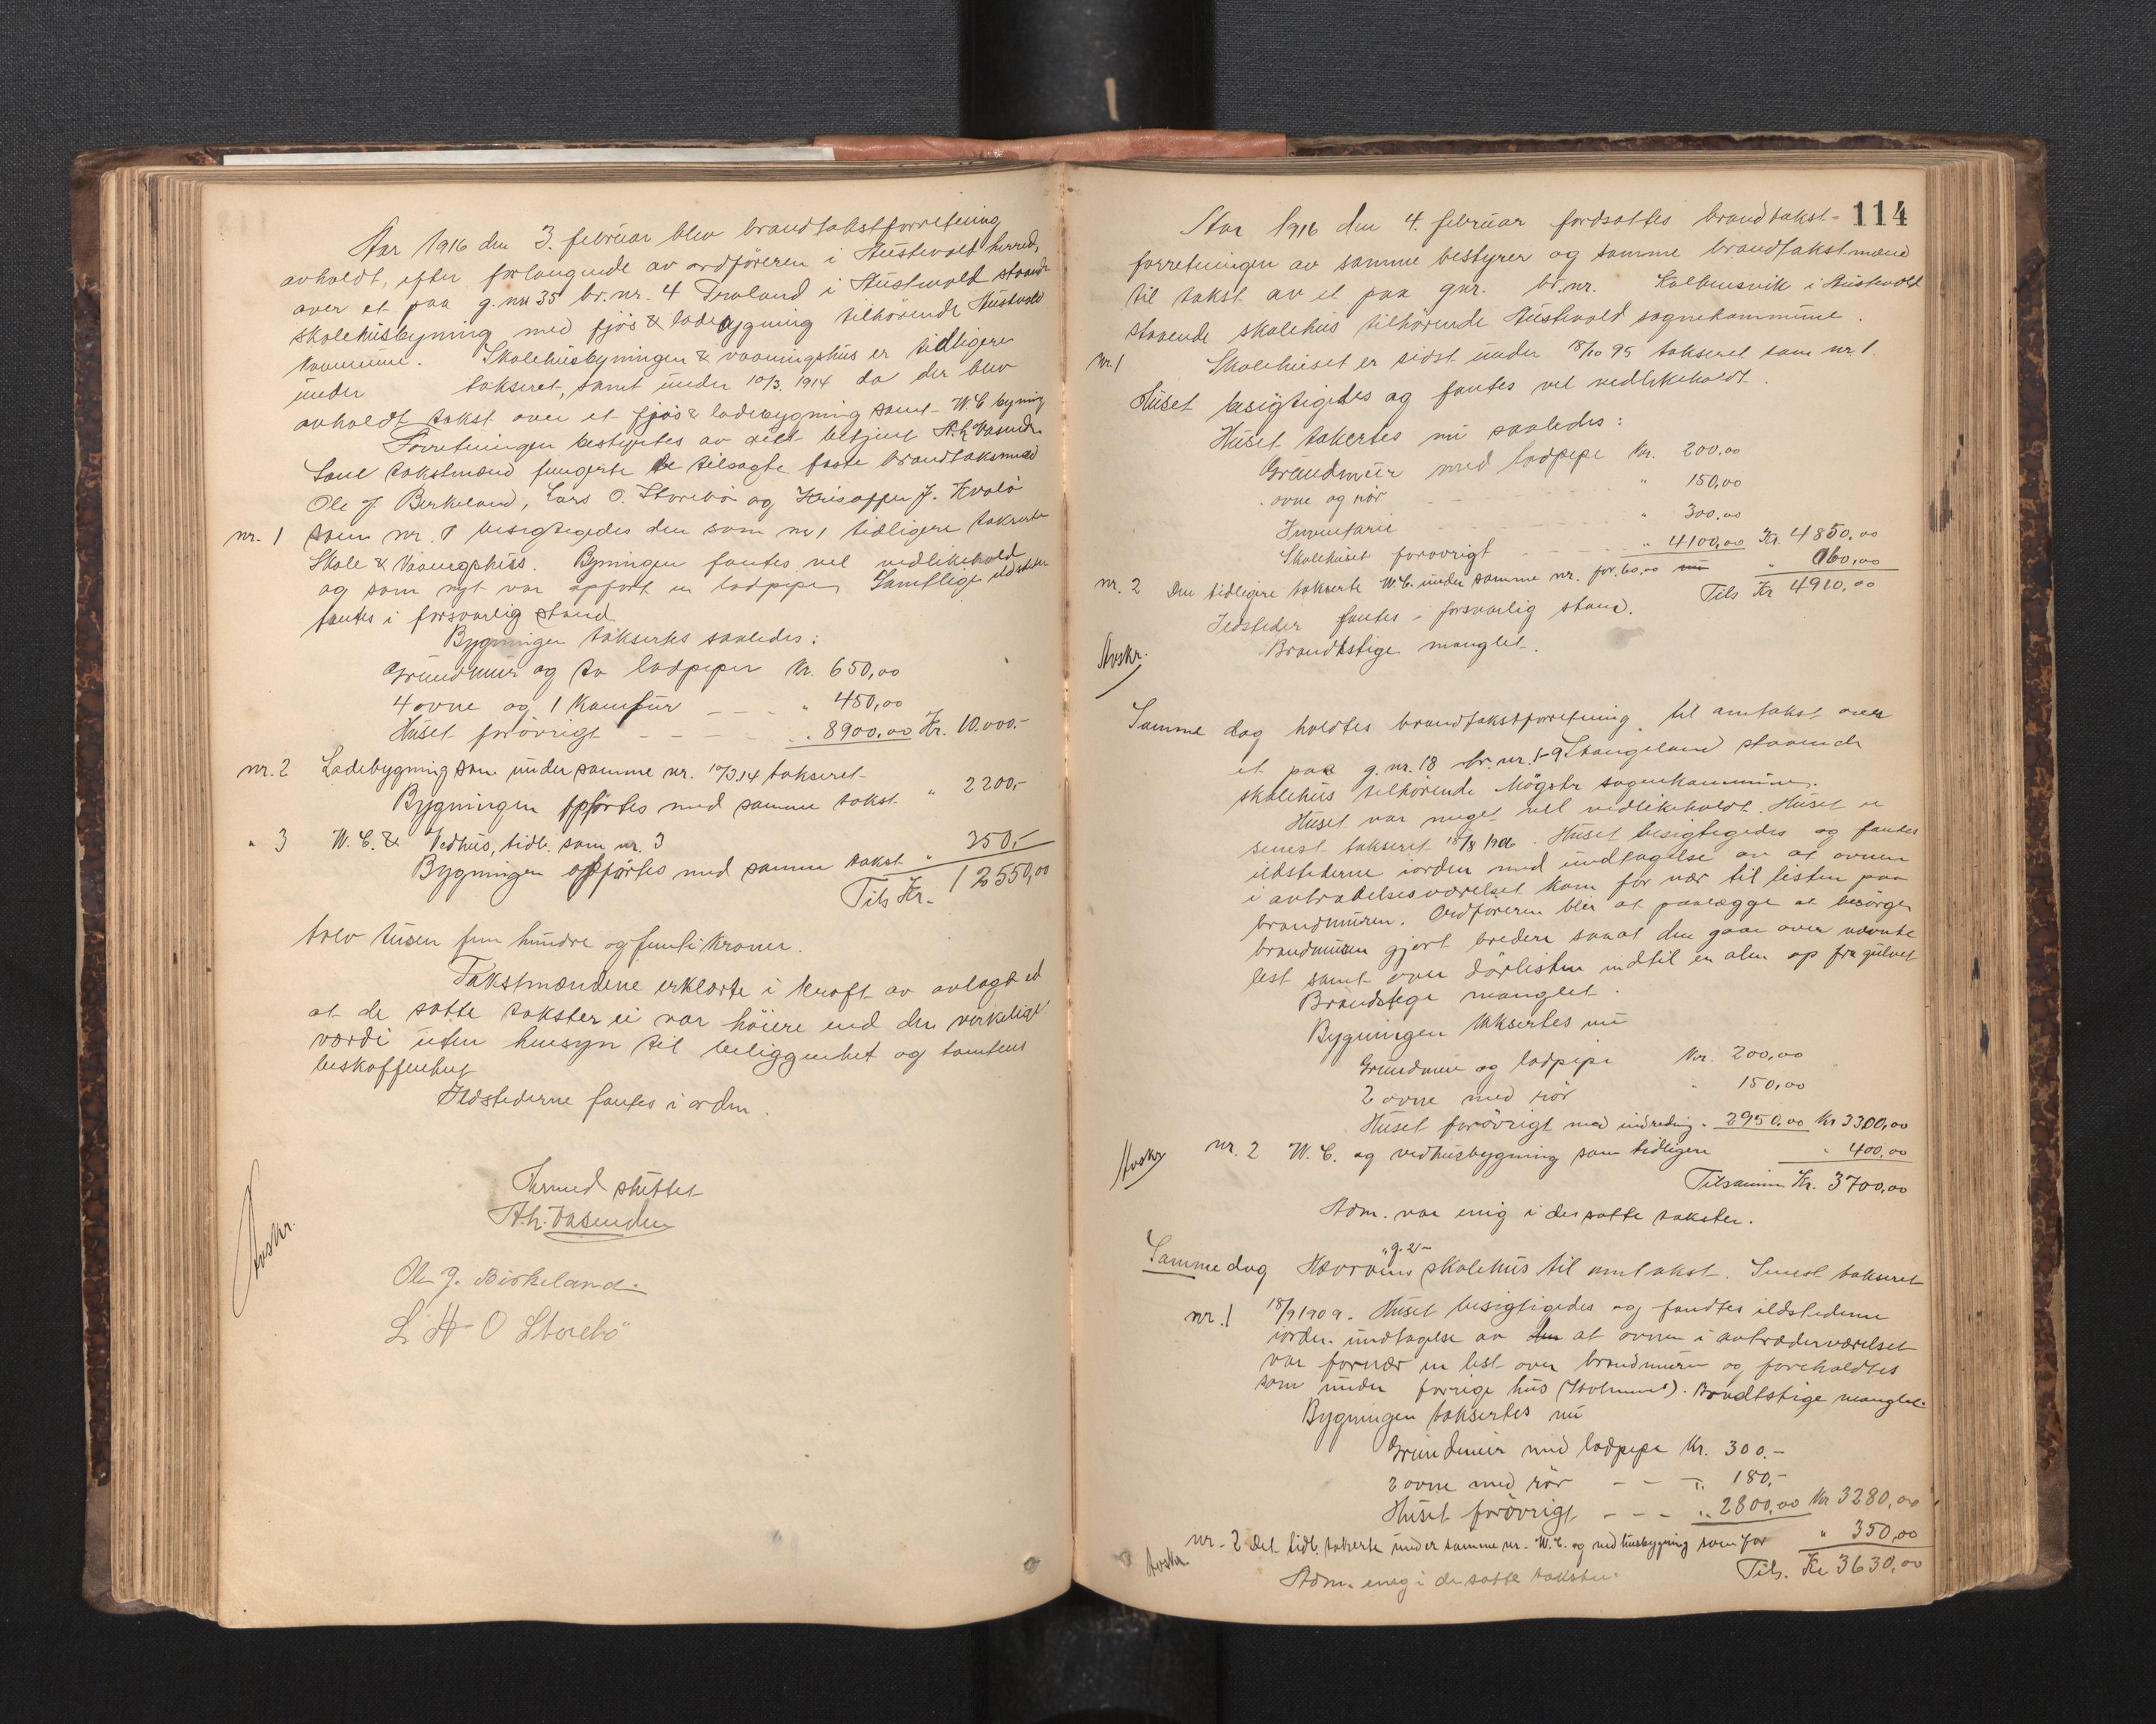 Aar 1916 den 3. februar blev brandtakstforretning
avholdt, efter forlangende av ordføreren i Austevold herred,
over et paa g.nr 35 br.nr. 4 Drøland i Austevold staaende
skolehusbygning med fjøs & ladebygning tilhørende Austevold
kommune. Skolehusbygningen & vaaningshus er tidligere
under takseret, samt under 10/3 1914 da der blev
avholdt takst over et fjøs & ladebygning samt W.C bygning
Forretningen bestyrtes av betjent A.h. Vasenden
Som takstmænd fungerte de tilsagte faste brandtaksmænd
Ole J. Berkeland, Lars O. Storebø og Kristoffer J. Kvalø
nr. 1 Som nr. 1 besigtigedes den som nr 1 tidligere takserte
Skole & Vaaningshus. Bygningen fantes vel vedlikehold
og som nyt var opført en ladpipe, Samtlige ildsteder
fantes i forsvarlig stand
Bygningen taksertes saaledes:
Grundmur og to ladpiper Kr. 650,00
4 ovne og 1 Komfur - - - " 450,00
Huset forøvrigt - - - " 8900,00 Kr. 10.000.-
nr. 2 Ladebygning som under samme nr. 10/3 14 takseret
Bygningen opførtes med samme takst " 2200,-
" 3 W.C. & Vedhus, tidl. som nr. 3
Bygningen opførtes med samme takst " 350,-
Tils Kr. 12550,00
tolv tusen fem hundre og femti Kroner.
Takstmændene erklærte i kraft av avlagt ed
at de satte takster ei var høiere end den virkelige
værdi uten hensyn til beliggenhet og tomtens
beskaffenhet
Ildstederne fantes i orden.
Hermed sluttet
A.h. Vasenden
Ole J. Birkeland.
L O Storebø
Avskr.
114
Aar 1916 den 4. februar fordsattes brandtakst-
forretningen av samme bestyrer og samme brandtakstmænd
til takst av et paa gnr. br.nr. Kolbensvik i Austevold
staaende skolehus tilhørende Austevold sognekommune.
Nr. 1 Skolehuset er sidst under 18/10 95 takseret som nr. 1.
Huset besigtigedes og fantes vel vedlikeholdt.
Huset takertes nu saaledes:
Grundmur med ladpipe Kr. 200,00
ovne og rør " 150,00
Inventarie " 300,00
Skolehuset forøvrigt - - - " 4100,00 Kr. 4850,00
nr. 2 Den tidligere takserte W.C. under samme nr. for 60,00 " 60,00
Ildsteder fantes i forsvarlig stand. Tils Kr 4910,00
Brandstige manglet.
Avskr.
Samme dag holdtes brandtakstforretning til omtakst over
et paa g.nr. 18 br.nr. 1-9 Stangeland staaende
skolehus tilhørende Møgster sognekommune.
Huset var meget vel vedlikeholdt. Huset er
senest takseret 18/8 1906. Huset besigtigedes og fantes
ildstederne iorden med undtagelse av at ovnen
i avtrædelsesværelset kom for nær til listen paa
brandmuren. Ordføreren blir at paalægge at besørge
brandmuren gjort bredere saaat den gaar over nævnte
list samt over dørlisten indtil en alen op fra gulvet
Brandstige manglet.
Bygningen taksertes nu
Grundmur og ladpipe Kr. 200,00
2 ovne med rør " 150,00
Huset forøvrigt med indreding " 2950,00 Kr 3300,00
nr. 2 W.C. og vedhusbygning som tidligere " 400,00
Avskr Tilsammen Kr. 3700,00
Adm. var enig i de satte takster.
"g. 2-
Samme dag skolehus til omtakst. Senest takseret
nr. 1 18/9 1909. Huset besigtigedes og fandtes ildstederne
iorden undtagelse av at ovnen i avtræderværelset
var fornær en list over brandmuren og foreholdtes
som under forrige hus. Brandtstige manglet.
Bygningen taksertes nu
Grundmur med ladpipe Kr. 300.-
2 ovne med rør - - " 180,-
Huset forøvrigt - - - " 2800,00 Kr 3280,00
nr. 2 Det tidl. takserte under samme nr. W.C. og vedhusbygning som før " 350,00
Avskr. Adm. enig i de satte takster. Tils. Kr 3630,00